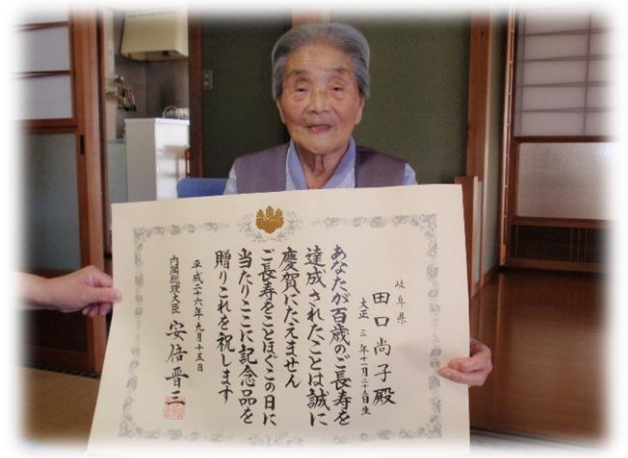 岐阜県
田口尚子殿
大正三年十一月二十三日生
あなたが百歳のご長寿を
達成されたことは誠に
慶賀にたえません
ご長寿をことほぐこの日に
当たりここに記念品を
贈りこれを祝します
平成二十六年九月十五日
内閣総理大臣 安倍晋三